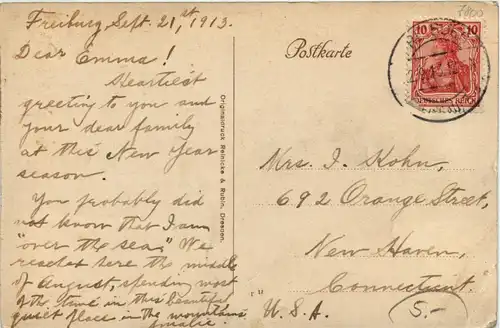 Freiburg Sept. 21st 1913.
Dear Emma!
Heartiest
greeting to you and
your dear family
at this New Year
season.
You probably did
not know that I am
"over the sea." We
reached here the middle
of August, spending most
of the time in this beautiful
quiet place in the mountains
Amalie.
Originaldruck Reinicke & Rubin, Dresden.
Postkarte
10 10
DEUTSCHES REICH
Mrs. I. Kohn,
692 Orange Street,
New Haven,
Connecticut.
U. S. A.
5.-